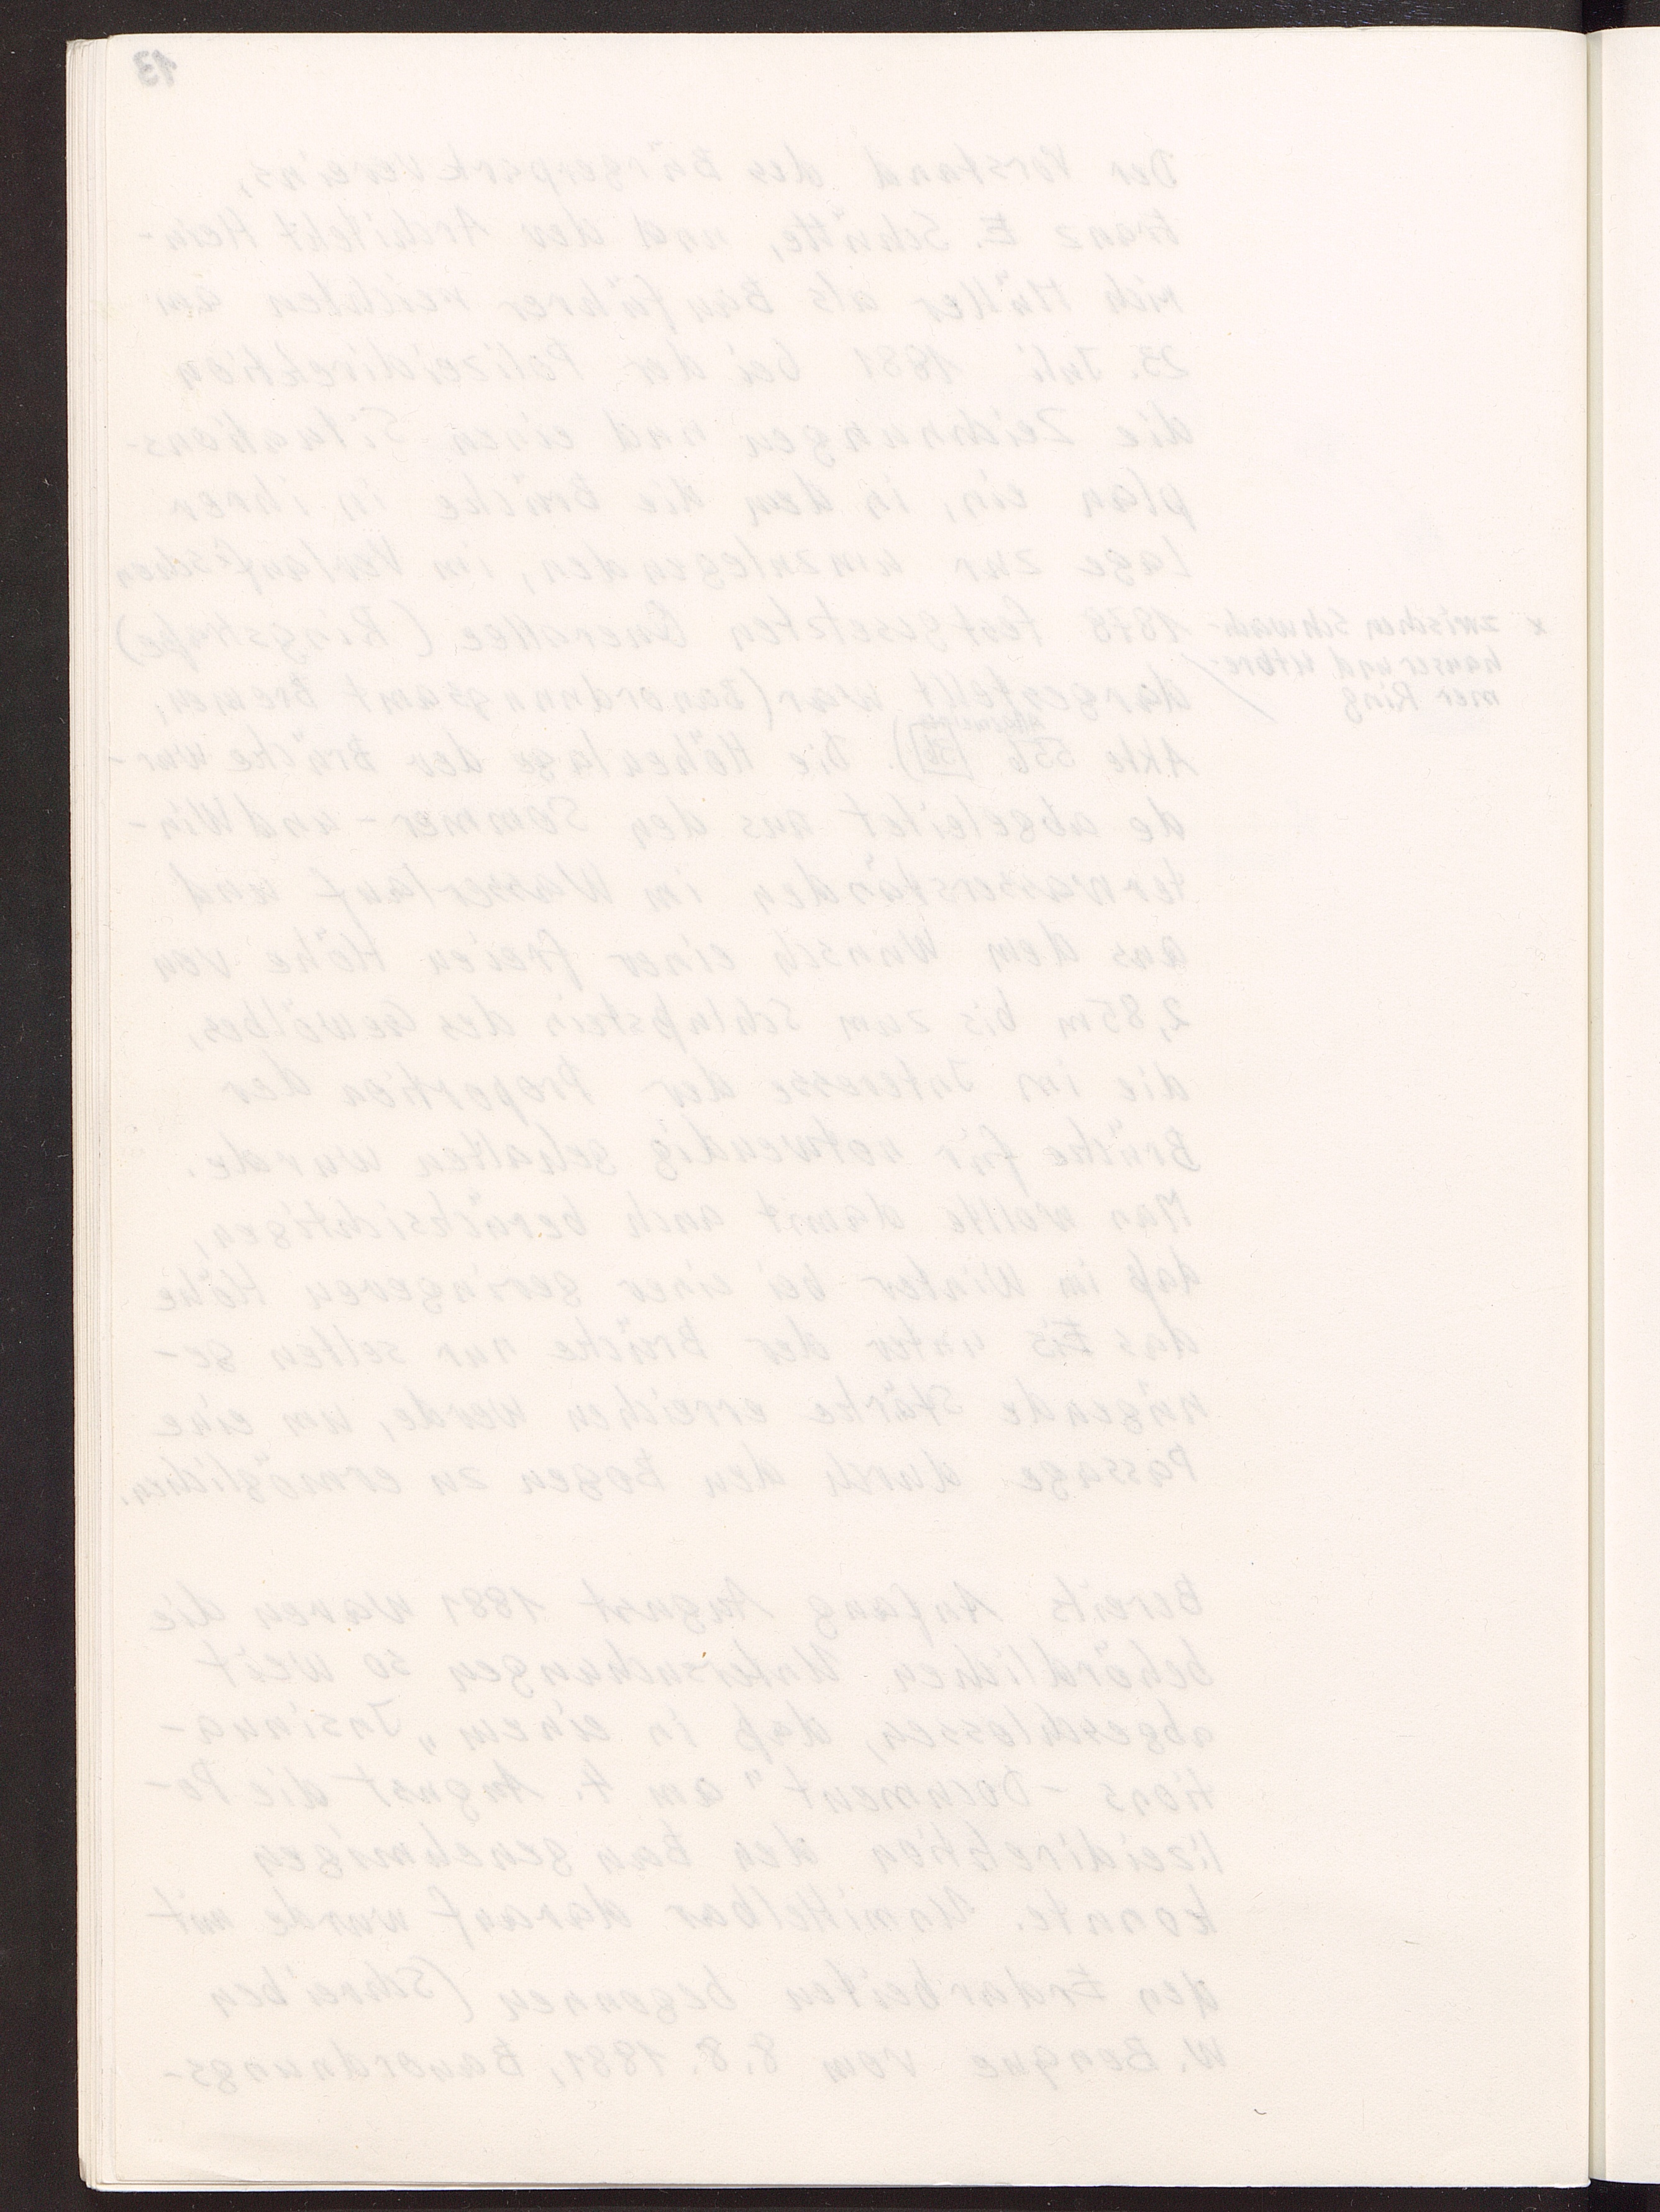 13
Der Vorstand des Bürgerparkvereins,
Franz E. Schütte, und der Architekt Hein-
rich Müller als Bauführer reichten am
23. Juli 1881 bei der Polizeidirektion
die Zeichnungen und einen Situations-
plan ein, in dem die Brücke in ihrer
Lage zur umzulegenden, im Verlauf schon
1878 festgesetzten Querallee (Ringstraße)
x zwischen Schwach-
hauser und Utbre-
mer Ring
dargestellt war (Bauordnungsamt Bremen,
Akte 556). Die Höhenlage der Brücke wur-
de abgeleitet aus den Sommer- und Win-
terwasserständen im Wasserlauf und
aus dem Wunsch einer freien Höhe von
2,85m bis zum Schlußstein des Gewölbes,
die im Interesse der Proportion der
Brücke für notwendig gehalten wurde.
Man wollte damit auch berücksichtigen,
daß im Winter bei einer geringeren Höhe
das Eis unter der Brücke nur selten ge-
nügende Stärke erreichen werde, um eine
Passage durch den Bogen zu ermöglichen.
Bereits Anfang August 1881 waren die
behördlichen Untersuchungen so weit
abgeschlossen, daß in einem „Insinua-
tions-Document" am 4. August die Po-
lizeidirektion den Bau genehmigen
konnte. Unmittelbar darauf wurde mit
den Erdarbeiten begonnen (Schreiben
W. Benque vom 8.8.1881, Bauordnungs-